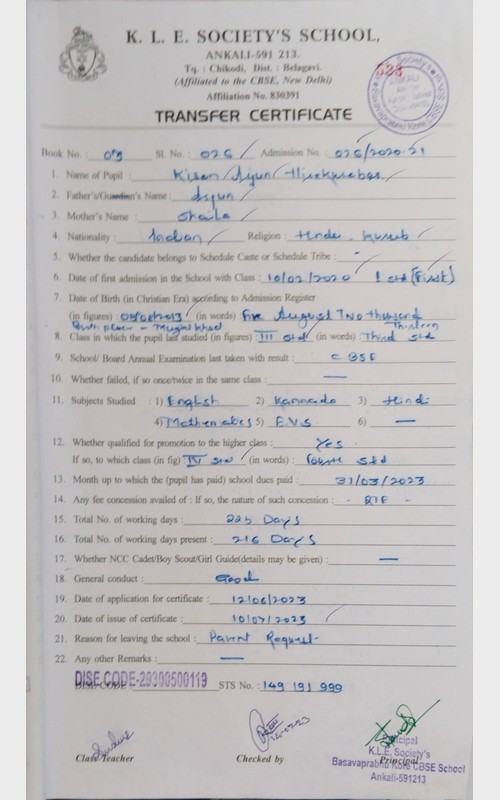 K. L. E. SOCIETY'S SCHOOL,
ANKALI-591 213.
Tq. : Chikodi, Dist. : Belagavi.
(Affiliated to the CBSE, New Delhi)
Affiliation No. 830391
TRANSFER CERTIFICATE
Book No. : 09 Sl. No. : 026 Admission No. 026/2020-21
1. Name of Pupil : Kiran Arjun Hirekurabar
2. Father's/Guardian's Name : Arjun
3. Mother's Name : Shaila
4. Nationality : Indian Religion : Hindu, Kurub
5. Whether the candidate belongs to Schedule Caste or Schedule Tribe : -
6. Date of first admission in the School with Class : 10/02/2020 I std (First)
7. Date of Birth (in Christian Era) according to Admission Register
(in figures) 05/08/2013 (in words) Five August Two thousand Thirteen
Birth place -
8. Class in which the pupil last studied (in figures) III std (in words) Third std
9. School/ Board Annual Examination last taken with result : CBSE
10. Whether failed, if so once/twice in the same class : —
11. Subjects Studied : 1) English 2) Kannada 3) Hindi
4) Mathematics 5) E.V.S 6) —
12. Whether qualified for promotion to the higher class : Yes
If so, to which class (in fig) IV std (in words) : fourth std
13. Month up to which the (pupil has paid) school dues paid : 31/03/2023
14. Any fee concession availed of : If so, the nature of such concession : - RTE -
15. Total No. of working days : 225 Days
16. Total No. of working days present : 216 Days
17. Whether NCC Cadet/Boy Scout/Girl Guide(details may be given) : —
18. General conduct : Good
19. Date of application for certificate : 12/06/2023
20. Date of issue of certificate : 10/07/2023
21. Reason for leaving the school : Parent Request
22. Any other Remarks : —
DISE CODE-29300500119 STS No. : 149 191 999
Class Teacher Checked by Principal
Principal
K.L.E. Society's
Basavaprabhu Kore CBSE School
Ankali-591213